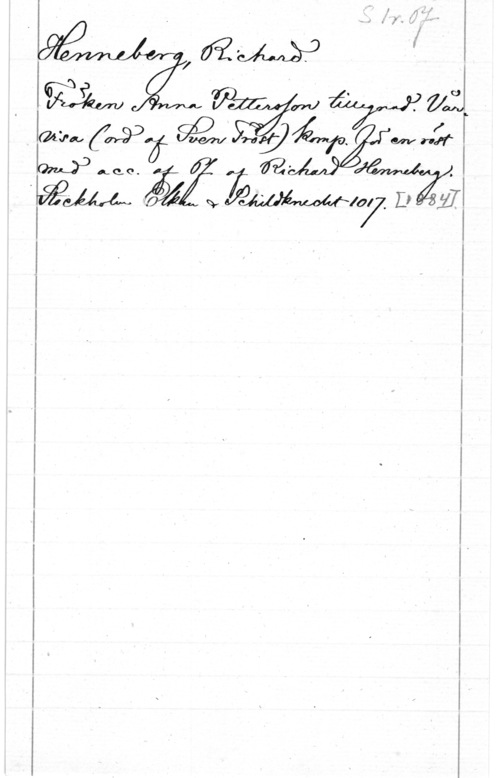 S 1r. Pf
Henneberg, Richard.
Fröken Anna Pettersson tillegnad. Vår-
visa (ord af Sven Tröst) komp. för en röst
med acc. af Pf af Richard Henneberg.
Stockholm Elkan & Schildknecht 1017. [1884].